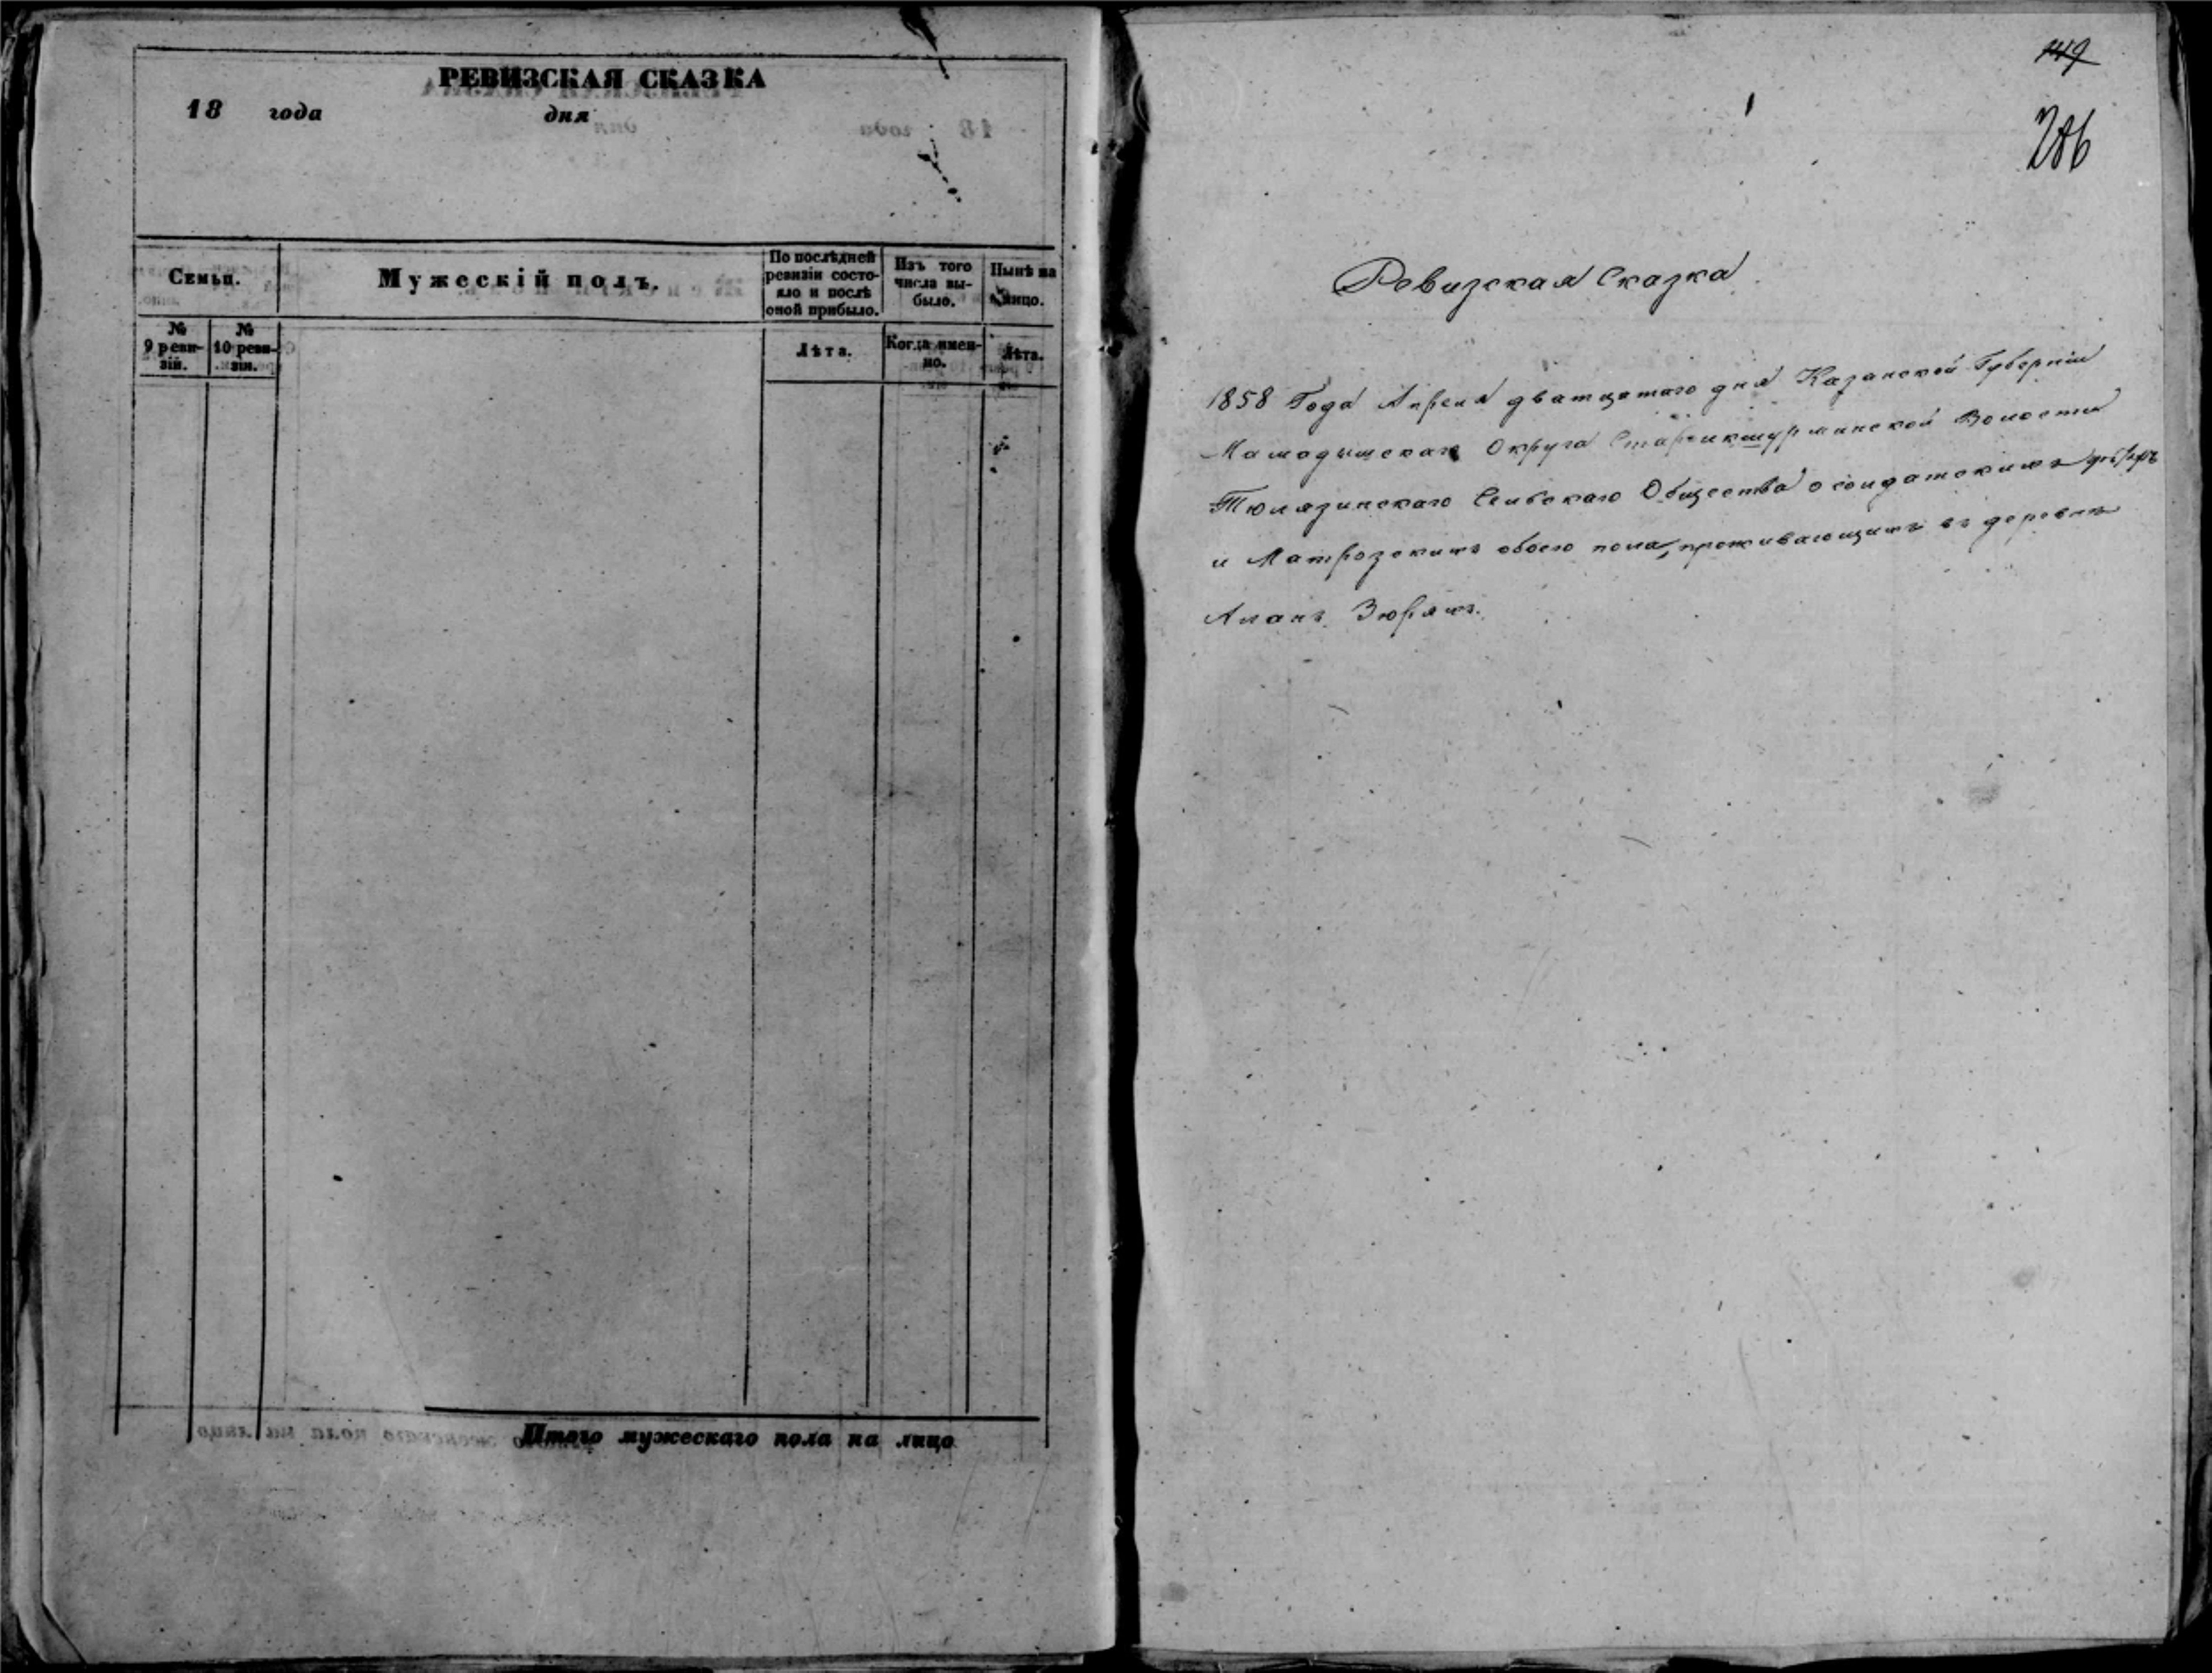 РЕВИЗСКАЯ СКАЗКА
18 года дня
Семьи.
Мужескій полъ.
По послѣдней ревизіи состояло и послѣ оной прибыло.
Изъ того числа выбыло.
Нынѣ на лицо.
№ 9 ревизіи.
№ 10 ревизіи.
Лѣта.
Когда именно.
Лѣта.
Итого мужескаго пола на лицо
149
286
Ревизская Сказка
1858 Года Апреля дватцатаго дня Казанской Губерніи
Мамадышскаго Округа Старопикшурминской Волости
Тюлязинскаго Сельскаго Общества о солдатскихъ
и Матрозскихъ обоего пола, проживающихъ въ деревнѣ
Аланъ Зюряхъ.